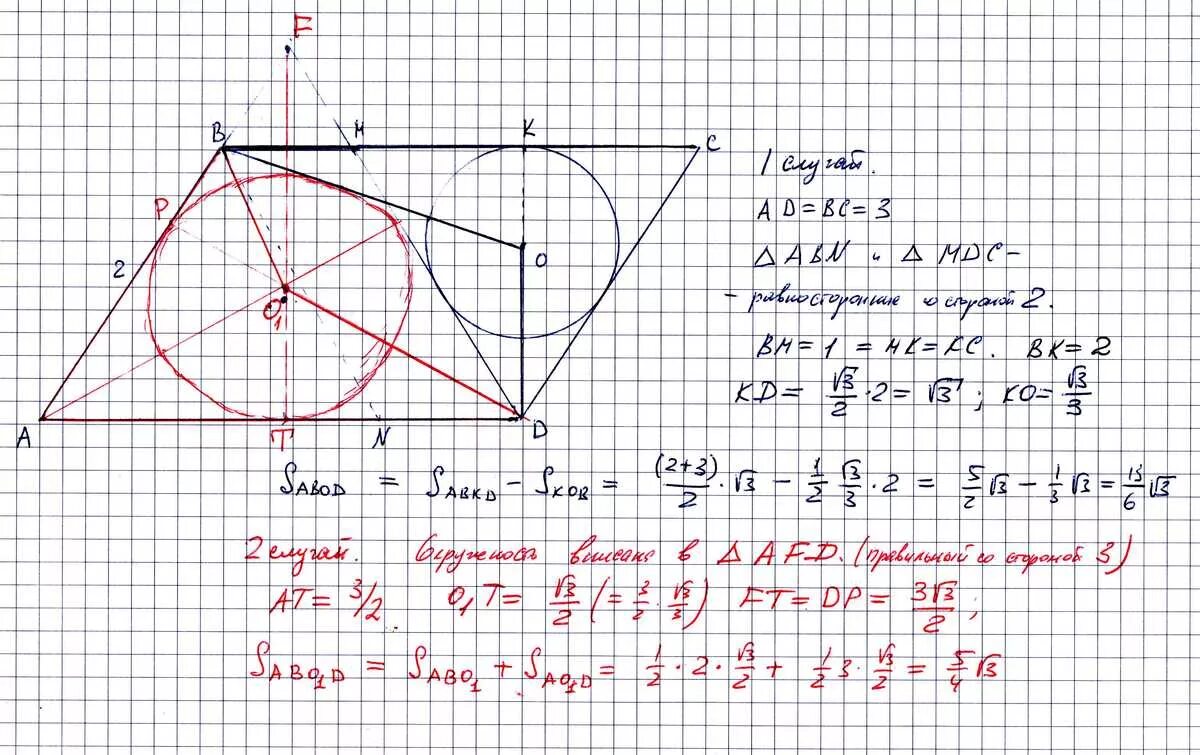 F
B M K C
P
2
O
O₁
A T N D
1 случай.
AD = BC = 3
△ ABN и △ MDC –
– равносторонние со стороной 2.
BM = 1 = MK = KC. BK = 2
KD = √3/2 · 2 = √3 ; KO = √3/3
S_ABOD = S_ABKD – S_KOB = (2+3)/2 · √3 – 1/2 √3/3 · 2 = 5/2 √3 – 1/3 √3 = 13/6 √3
2 случай. Окружность вписана в △ AFD. (правильный со стороной 3)
AT = 3/2 O₁T = √3/2 (= 3/2 · √3/3) FT = DP = 3√3/2 ;
S_ABO₁D = S_ABO₁ + S_AO₁D = 1/2 · 2 · √3/2 + 1/2 3 · √3/2 = 5/4 √3